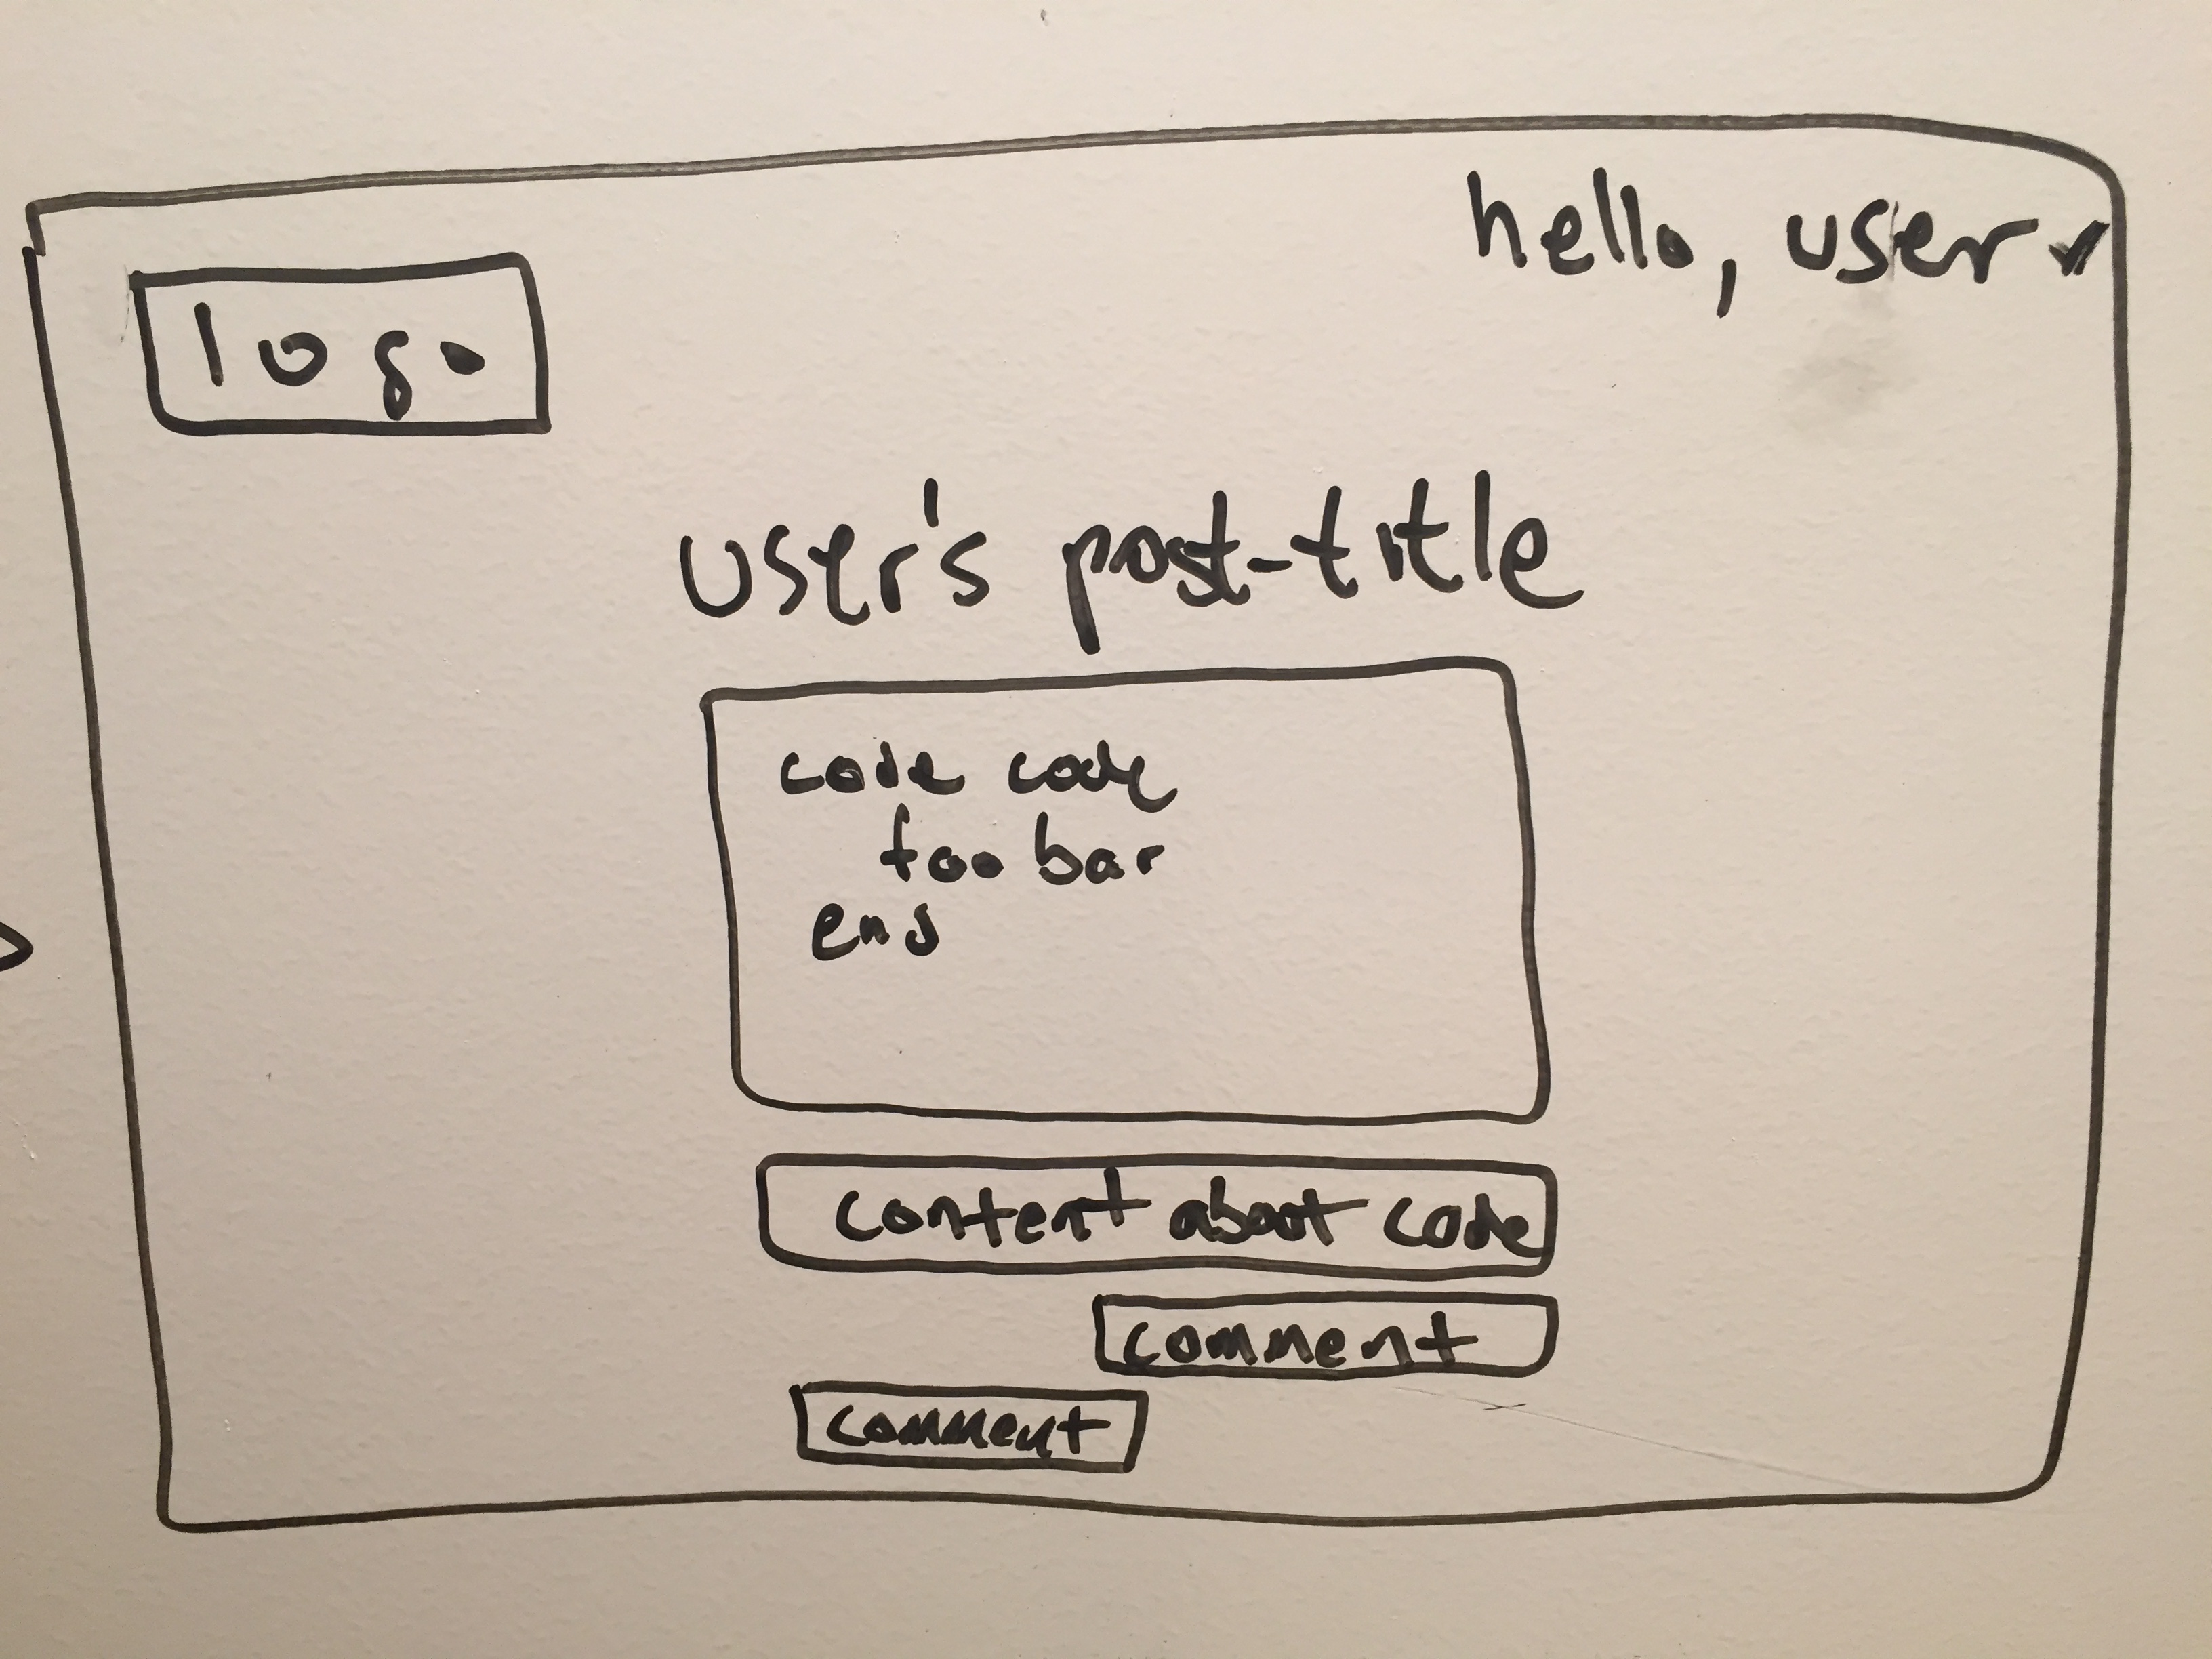 hello, user
logo
user's post-title
code code
foo bar
end
content about code
comment
comment